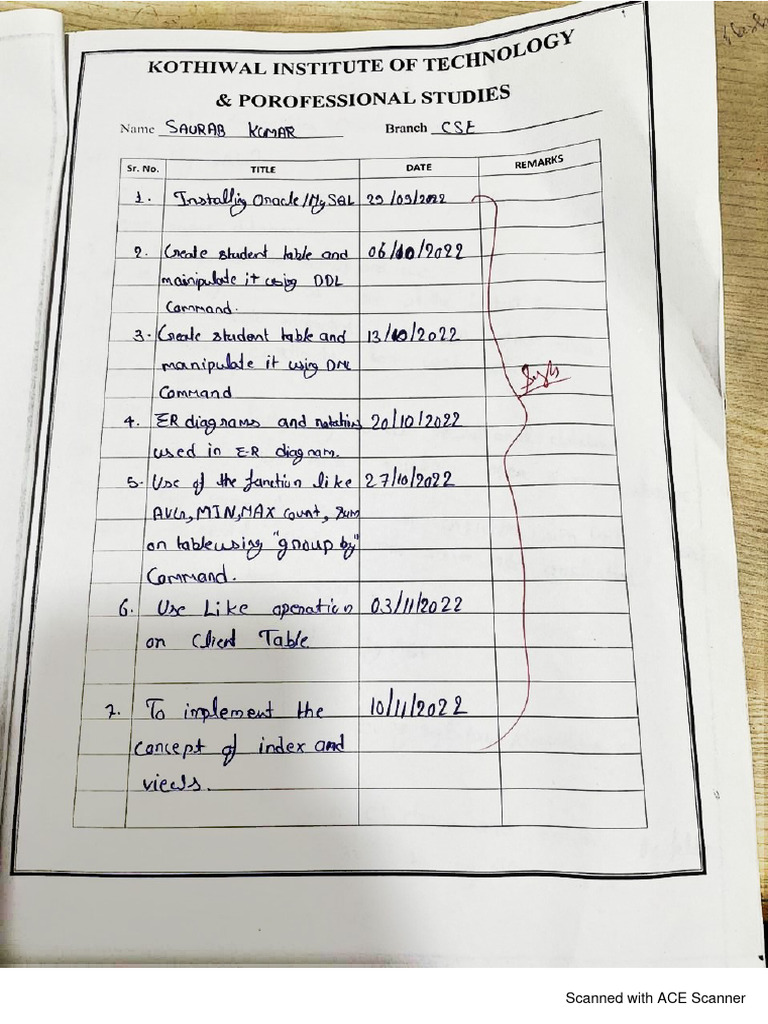 KOTHIWAL INSTITUTE OF TECHNOLOGY
& POROFESSIONAL STUDIES
Name SAURAB KUMAR Branch CSE
Sr. No. TITLE DATE REMARKS
1. Installing Oracle/MySQL 29/09/2022
2. Create student table and 06/10/2022
mainipulate it using DDL
Command.
3. Create student table and 13/10/2022
manipulate it using DML
Command
4. ER diagrams and notations 20/10/2022
used in E-R diagram.
5. Use of the function like 27/10/2022
AVG, MIN, MAX count, sum
on table using "group by"
Command.
6. Use Like operation 03/11/2022
on Client Table
7. To implement the 10/11/2022
concept of index and
views.
Scanned with ACE Scanner